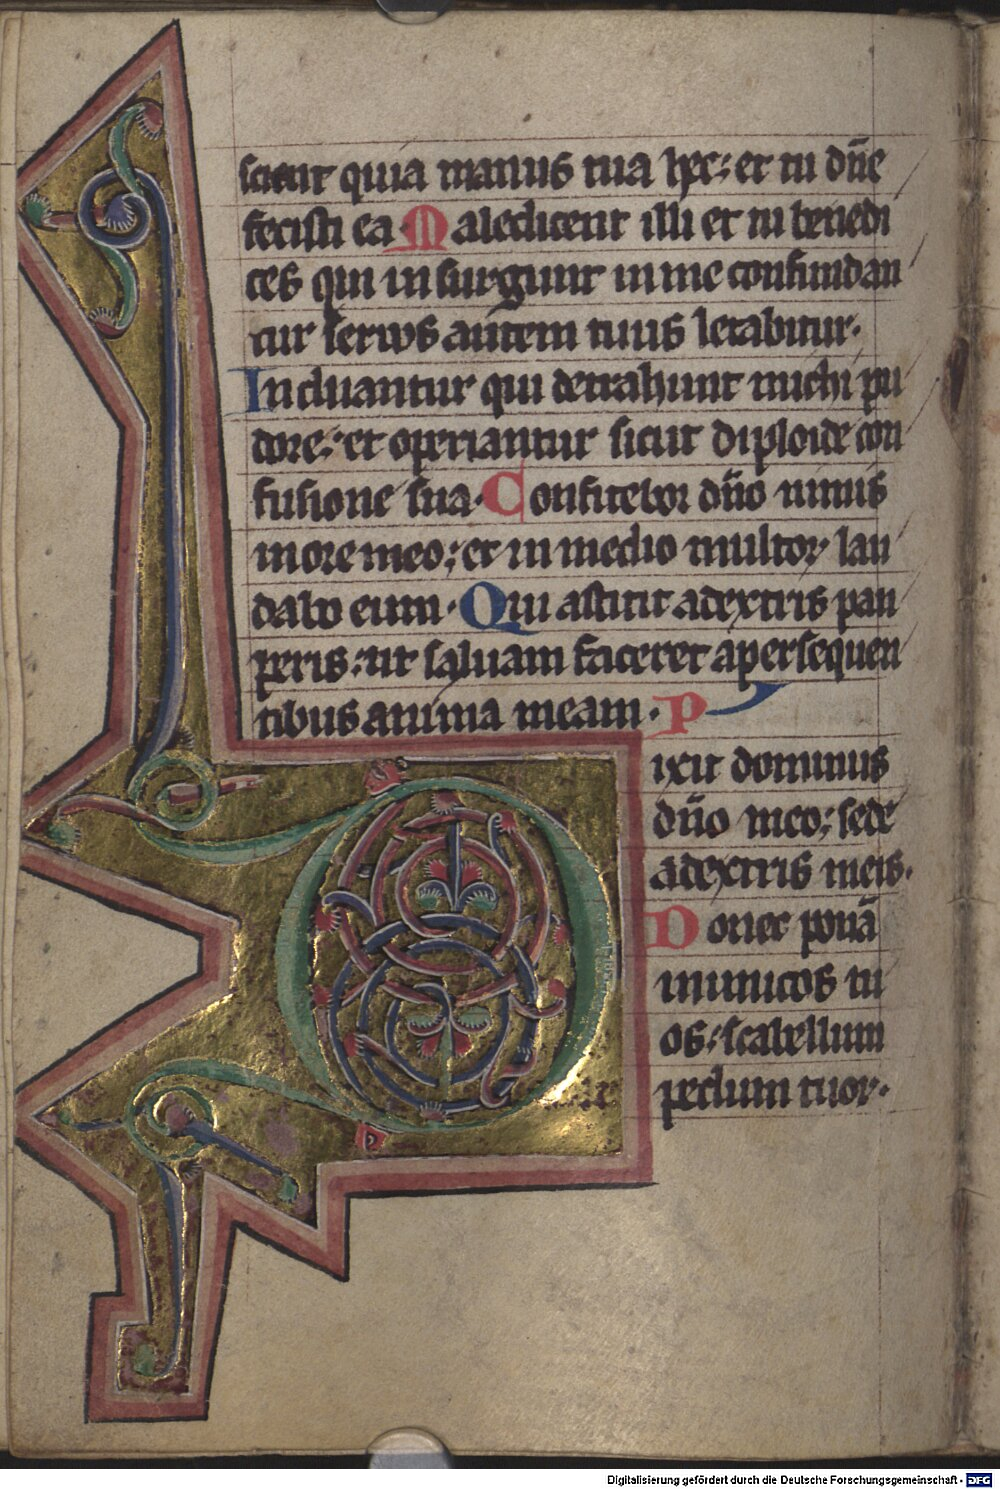 sciant quia manus tua hec: et tu dñe
fecisti ea. Maledicent illi et tu benedi
ces qui insurgunt in me confundan
tur serws autem tuus letabitur.
Induantur qui detrahunt michi pu
dore: et operiantur sicut diploide con
fusione sua. Confitebor dño nimis
in ore meo: et in medio multor lau
dabo eum. Qui astitit adextris pau
peris: ut saluam faceret apersequen
tibus anima meam. P
Dixit dominus
dño meo: sede
adextris meis.
Donec ponā
inimicos tu
os: scabellum
pedum tuor.
Digitalisierung gefördert durch die Deutsche Forschungsgemeinschaft - DFG